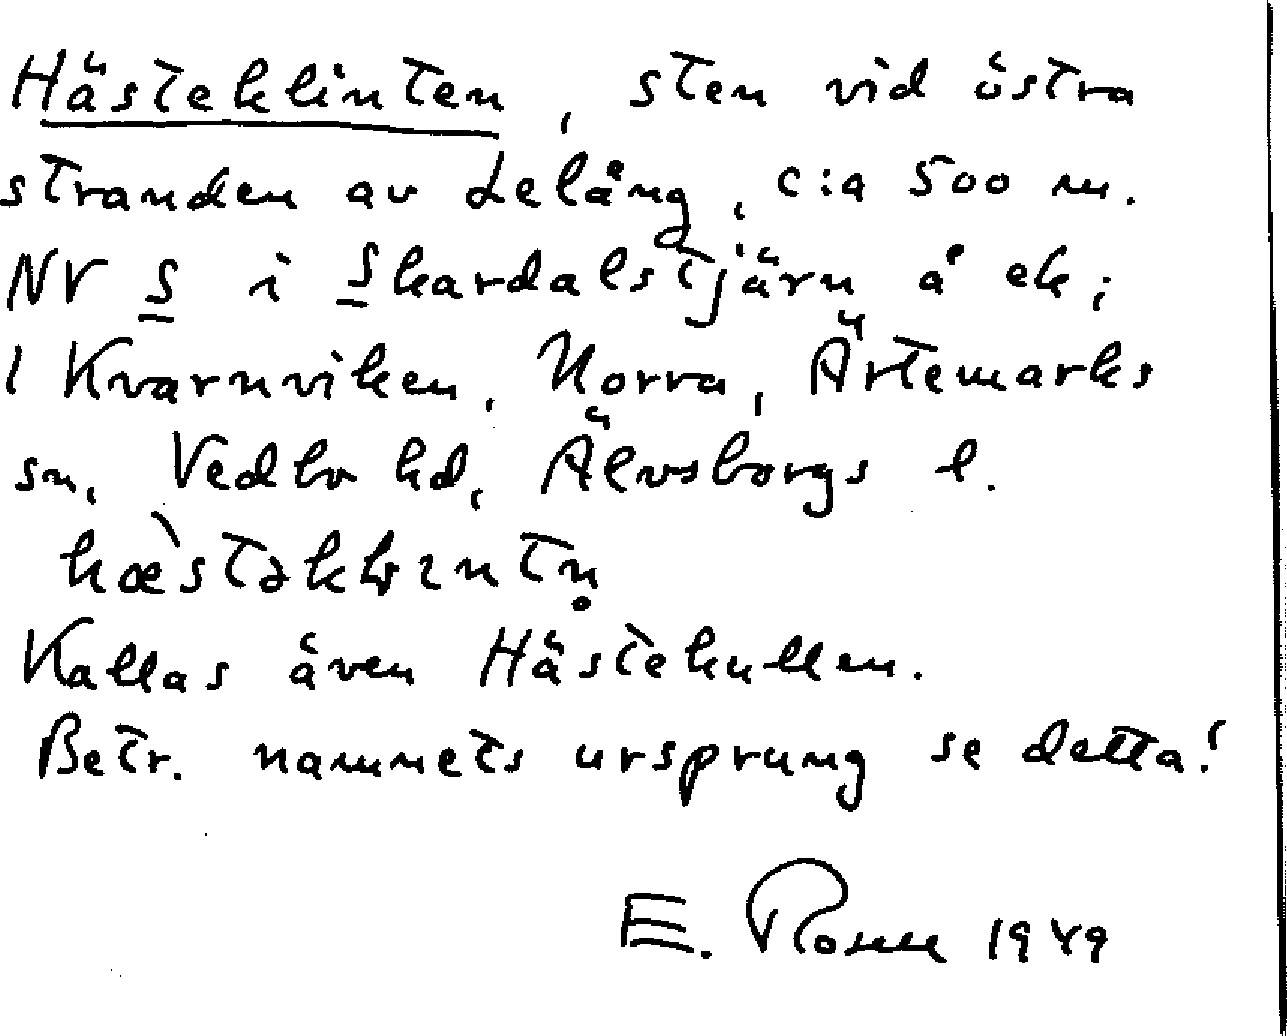 Hästeklinten, sten vid östra
stranden av Lelång, c:a 500 m.
NV S i Skardalstjärn å ek;
1 Kvarnviken, Norra, Ärtemarks
sn, Vedbo hd, Älvsborgs l.
Kallas även Hästekullen.
Betr. namnets ursprung se detta!
E. 1949